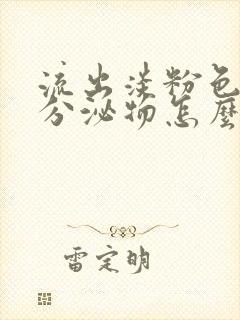 流出淡粉色
分泌物怎麼
雷定明